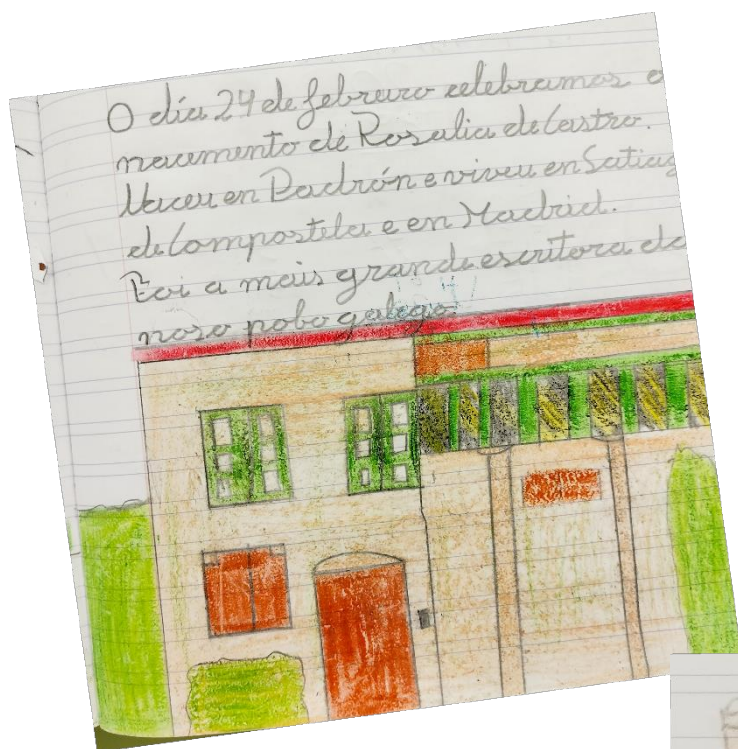 O día 24 de febreiro celebramos o
nacemento de Rosalia de Castro.
Naceu en Padrón e viviu en Satiag
de Compostela e en Madrid.
Foi a mais grande escritora do
noso pobo galego.